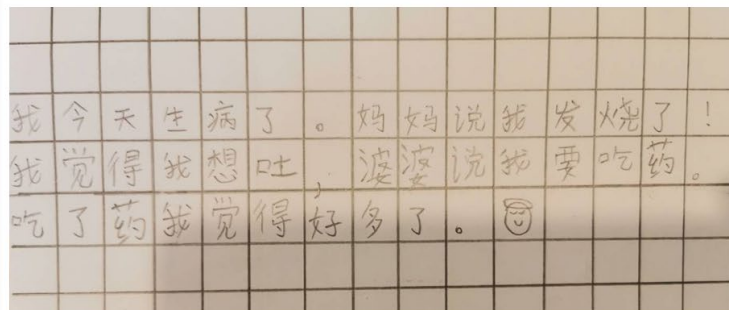 我今天生病了。妈妈说我发烧了！
我觉得我想吐，婆婆说我要吃药。
吃了药我觉得好多了。